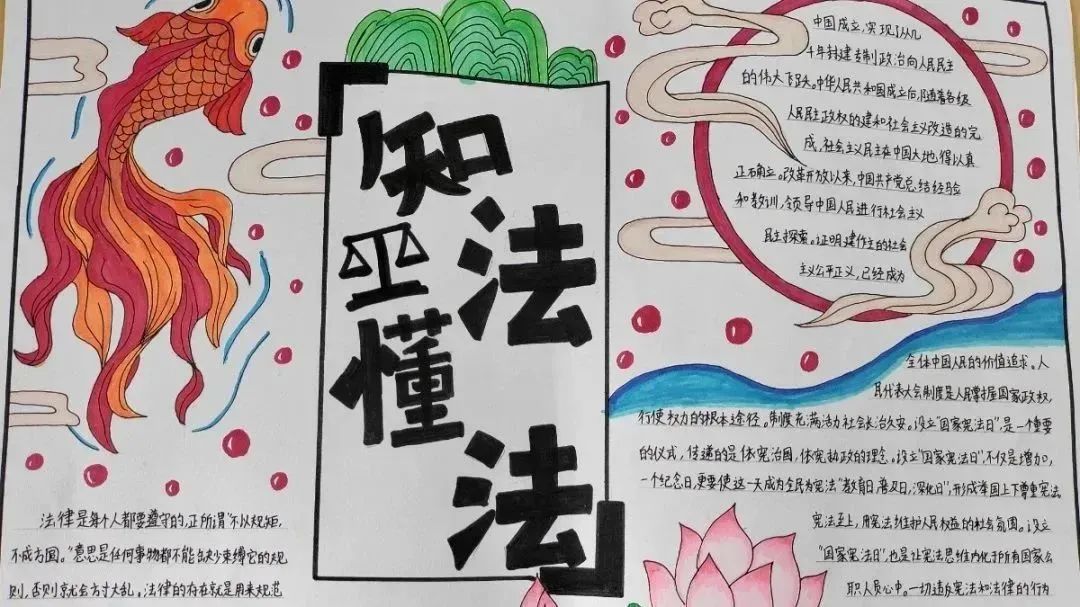 知法
懂法
中国成立,实现了从几
千年封建专制政治向人民民主
的伟大飞跃。中华人民共和国成立后,随着各级
人民民主政权的建和社会主义改造的完
成,社会主义民主在中国大地,得以真
正确立。改革开放以来,中国共产党总结经验
和教训,领导中国人民进行社会主义
民主探索。证明建作主的社会
主义公平正义,已经成为
全体中国人民的价值追求。人
民代表大会制度是人民掌握国家政权,
行使权力的根本途径。制度充满活力社会长治久安。设立“国家宪法日”,是一个重要
的仪式,传递的是依宪治国,依宪执政的理念。设立“国家宪法日”,不仅是增加,
一个纪念日,更要使这一天成为全民为宪法“教育日、普及日、深化日”,形成举国上下尊重宪法
宪法至上,用宪法维护人民权益的社会氛围。设立
“国家宪法日”,也是让宪法思维内化于所有国家公
职人员心中。一切违反宪法和法律的行为
法律是每个人都要遵守的,正所谓“不以规矩,
不成方圆。”意思是任何事物都不能缺少束缚它的规
则,否则就会方寸大乱。法律的存在就是用来规范